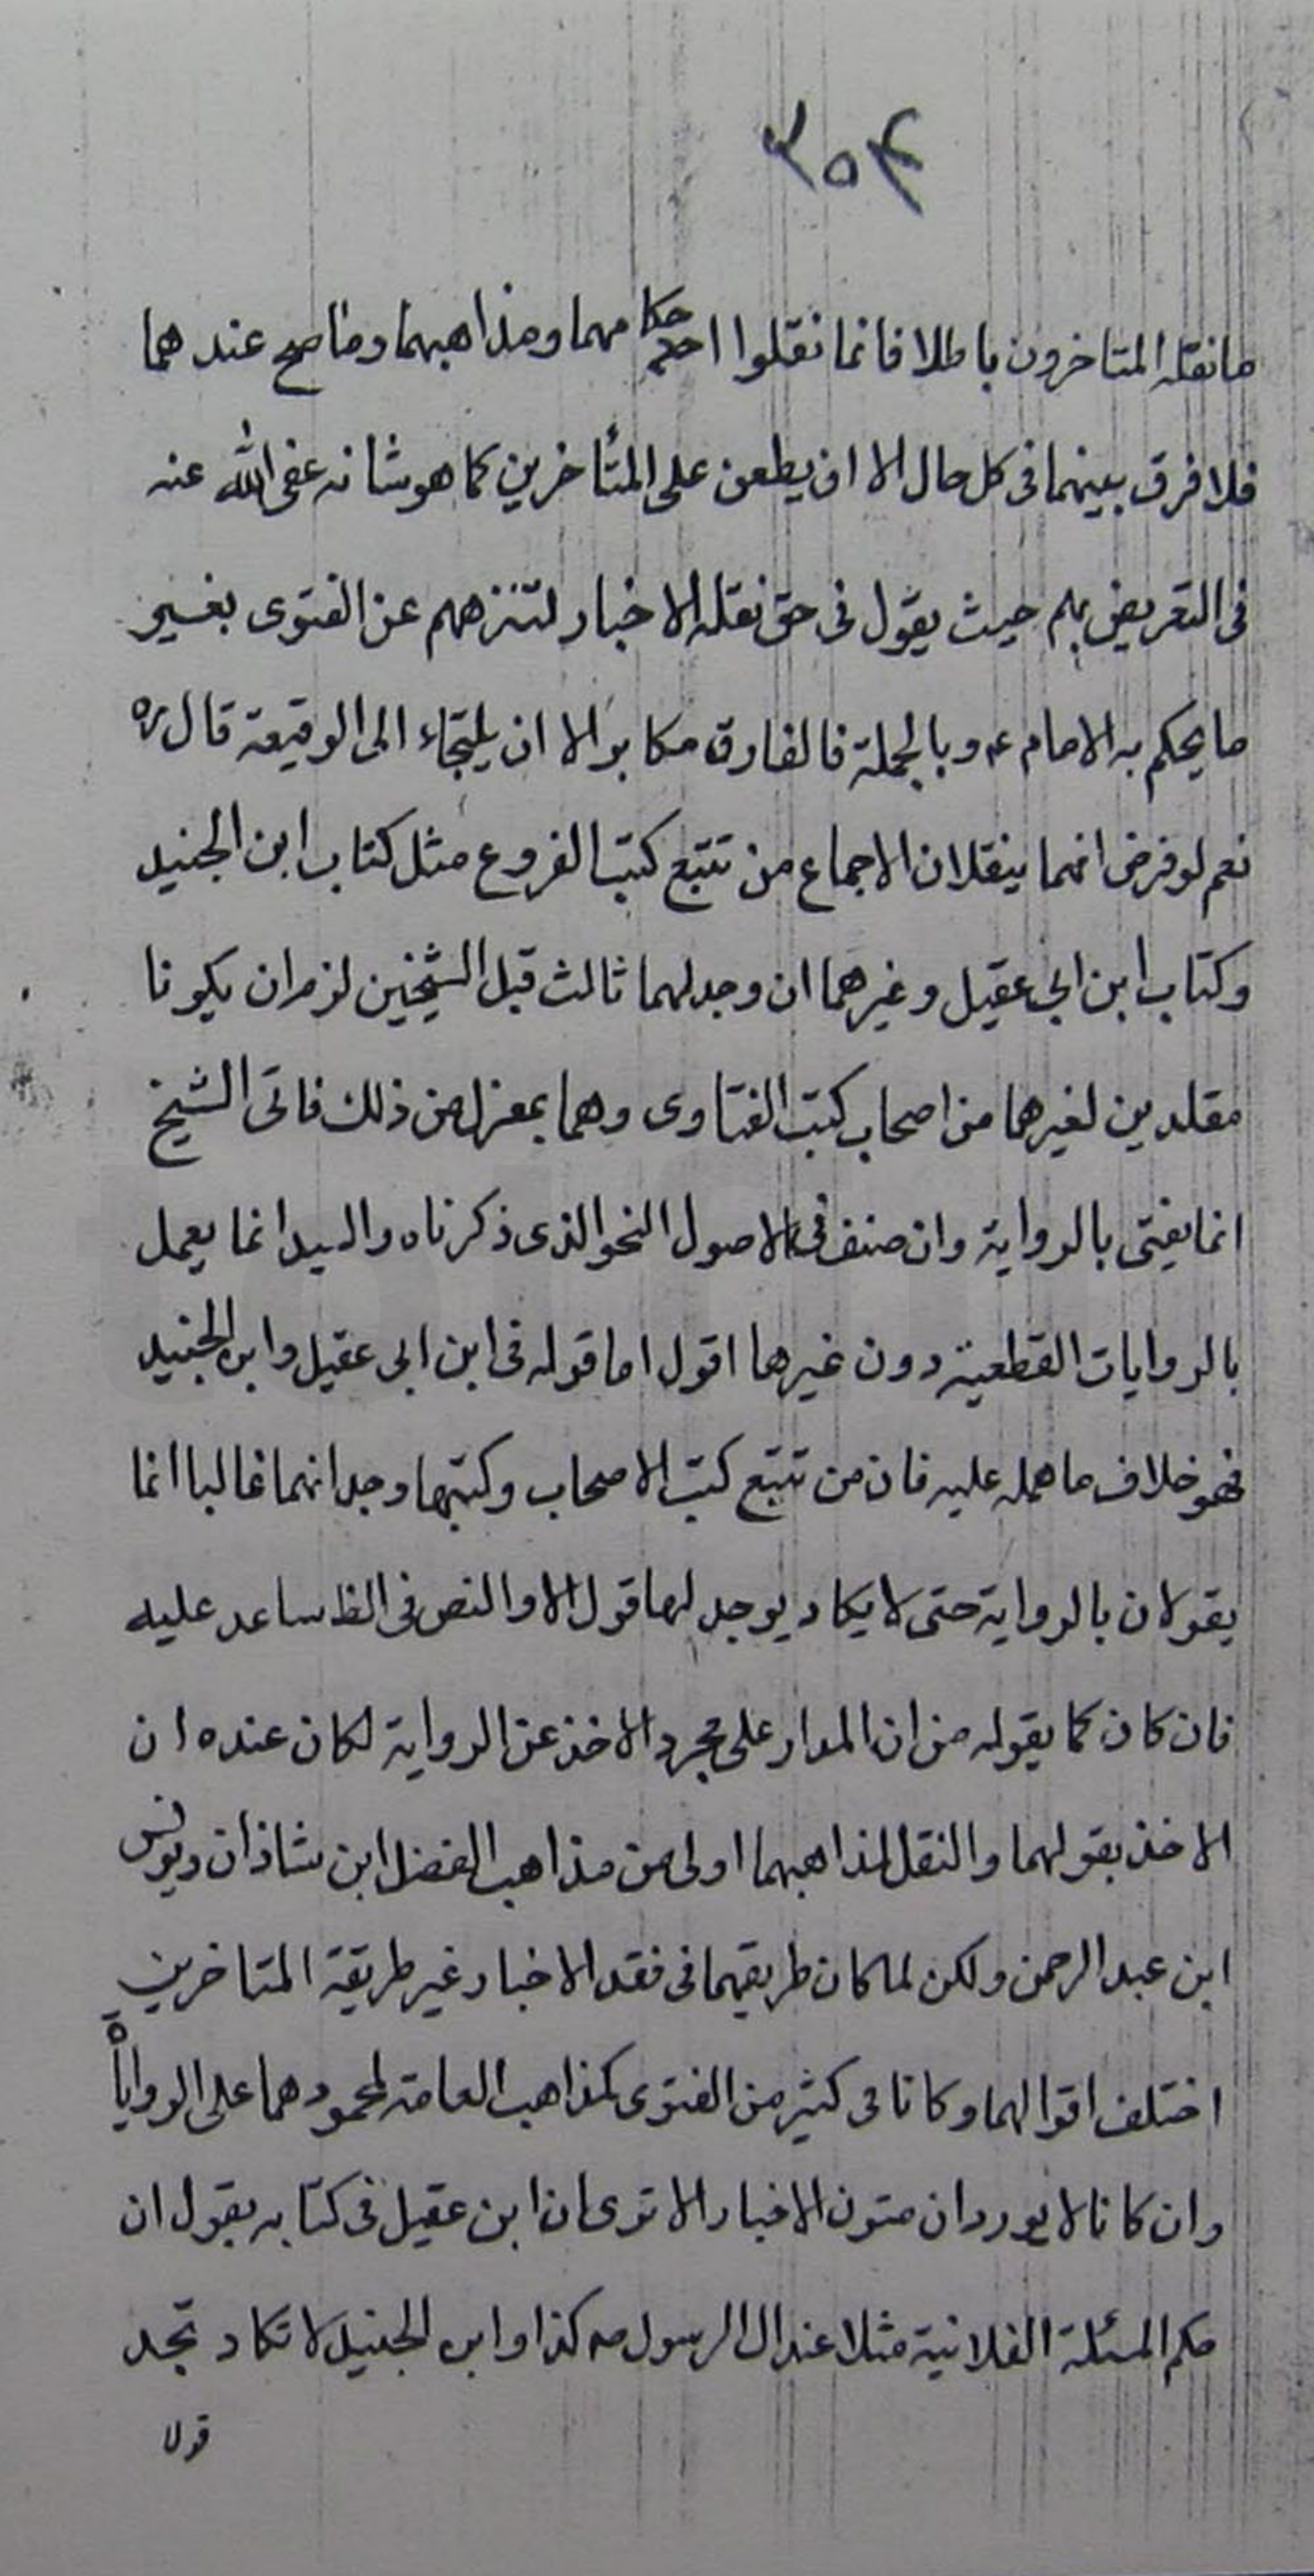 ۳۵۴
ما نقله المتاخرون باطلا فانما نقلوا احكامهما ومذاهبهما وما صح عندهما
فلا فرق بينهما فى كل حال الا ان يطعن على المتأخرين كما هو شانه عفى الله عنه
فى التعريض بهم حيث يقول فى حق نقله الاخبار لتنزههم عن الفتوى بغير
ما يحكم به الامام ع و بالجملة فالفارق مكابر الا ان يلتجاء الى الوقيعة قال ره
نعم لو فرض انهما ينقلان الاجماع من تتبع كتب الفروع مثل كتاب ابن الجنيد
وكتاب ابن ابى عقيل وغيرهما ان وجد لهما ثالث قبل الشيخين لزم ان يكونا
مقلدين لغيرهما من اصحاب كتب الفتاوى وهما بمعزل عن ذلك فاتى الشيخ
انما يفتى بالرواية وان صنف فى الاصول النحو الذى ذكرناه والسيد انما يعمل
بالروايات القطعية دون غيرها اقول اما قوله فى ابن ابى عقيل وابن الجنيد
فهو خلاف ما همله عليه فان من تتبع كتب الاصحاب وكتبها وجد انهما غالبا انما
يقولان بالرواية حتى لا يكاد يوجد لهما قول الا والنص فى الظ ساعد عليه
فان كان كما يقوله من ان المدار على مجرد الاخذ عن الرواية لكان عنده ان
الاخذ بقولهما والنقل لمذاهبهما اولى من مذاهب الفضل ابن شاذان ويونس
ابن عبد الرحمن ولكن لما كان طريقهما فى فقد الاخبار غير طريقة المتاخرين
اختلف اقوالهما وكانا فى كثير من الفتوى كمذاهب العامة لجمودهما على الروايات
وان كانا لا يوردان متون الاخبار الا ترى ان ابن عقيل فى كتابه يقول ان
حكم المسئلة الفلانية مثلا عند ال الرسول ص كذا وابن الجنيد لا تكاد تجد
قولا